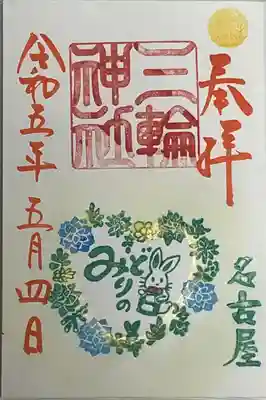 奉拝
三輪神社
名古屋
みどりの日
令和五年五月四日